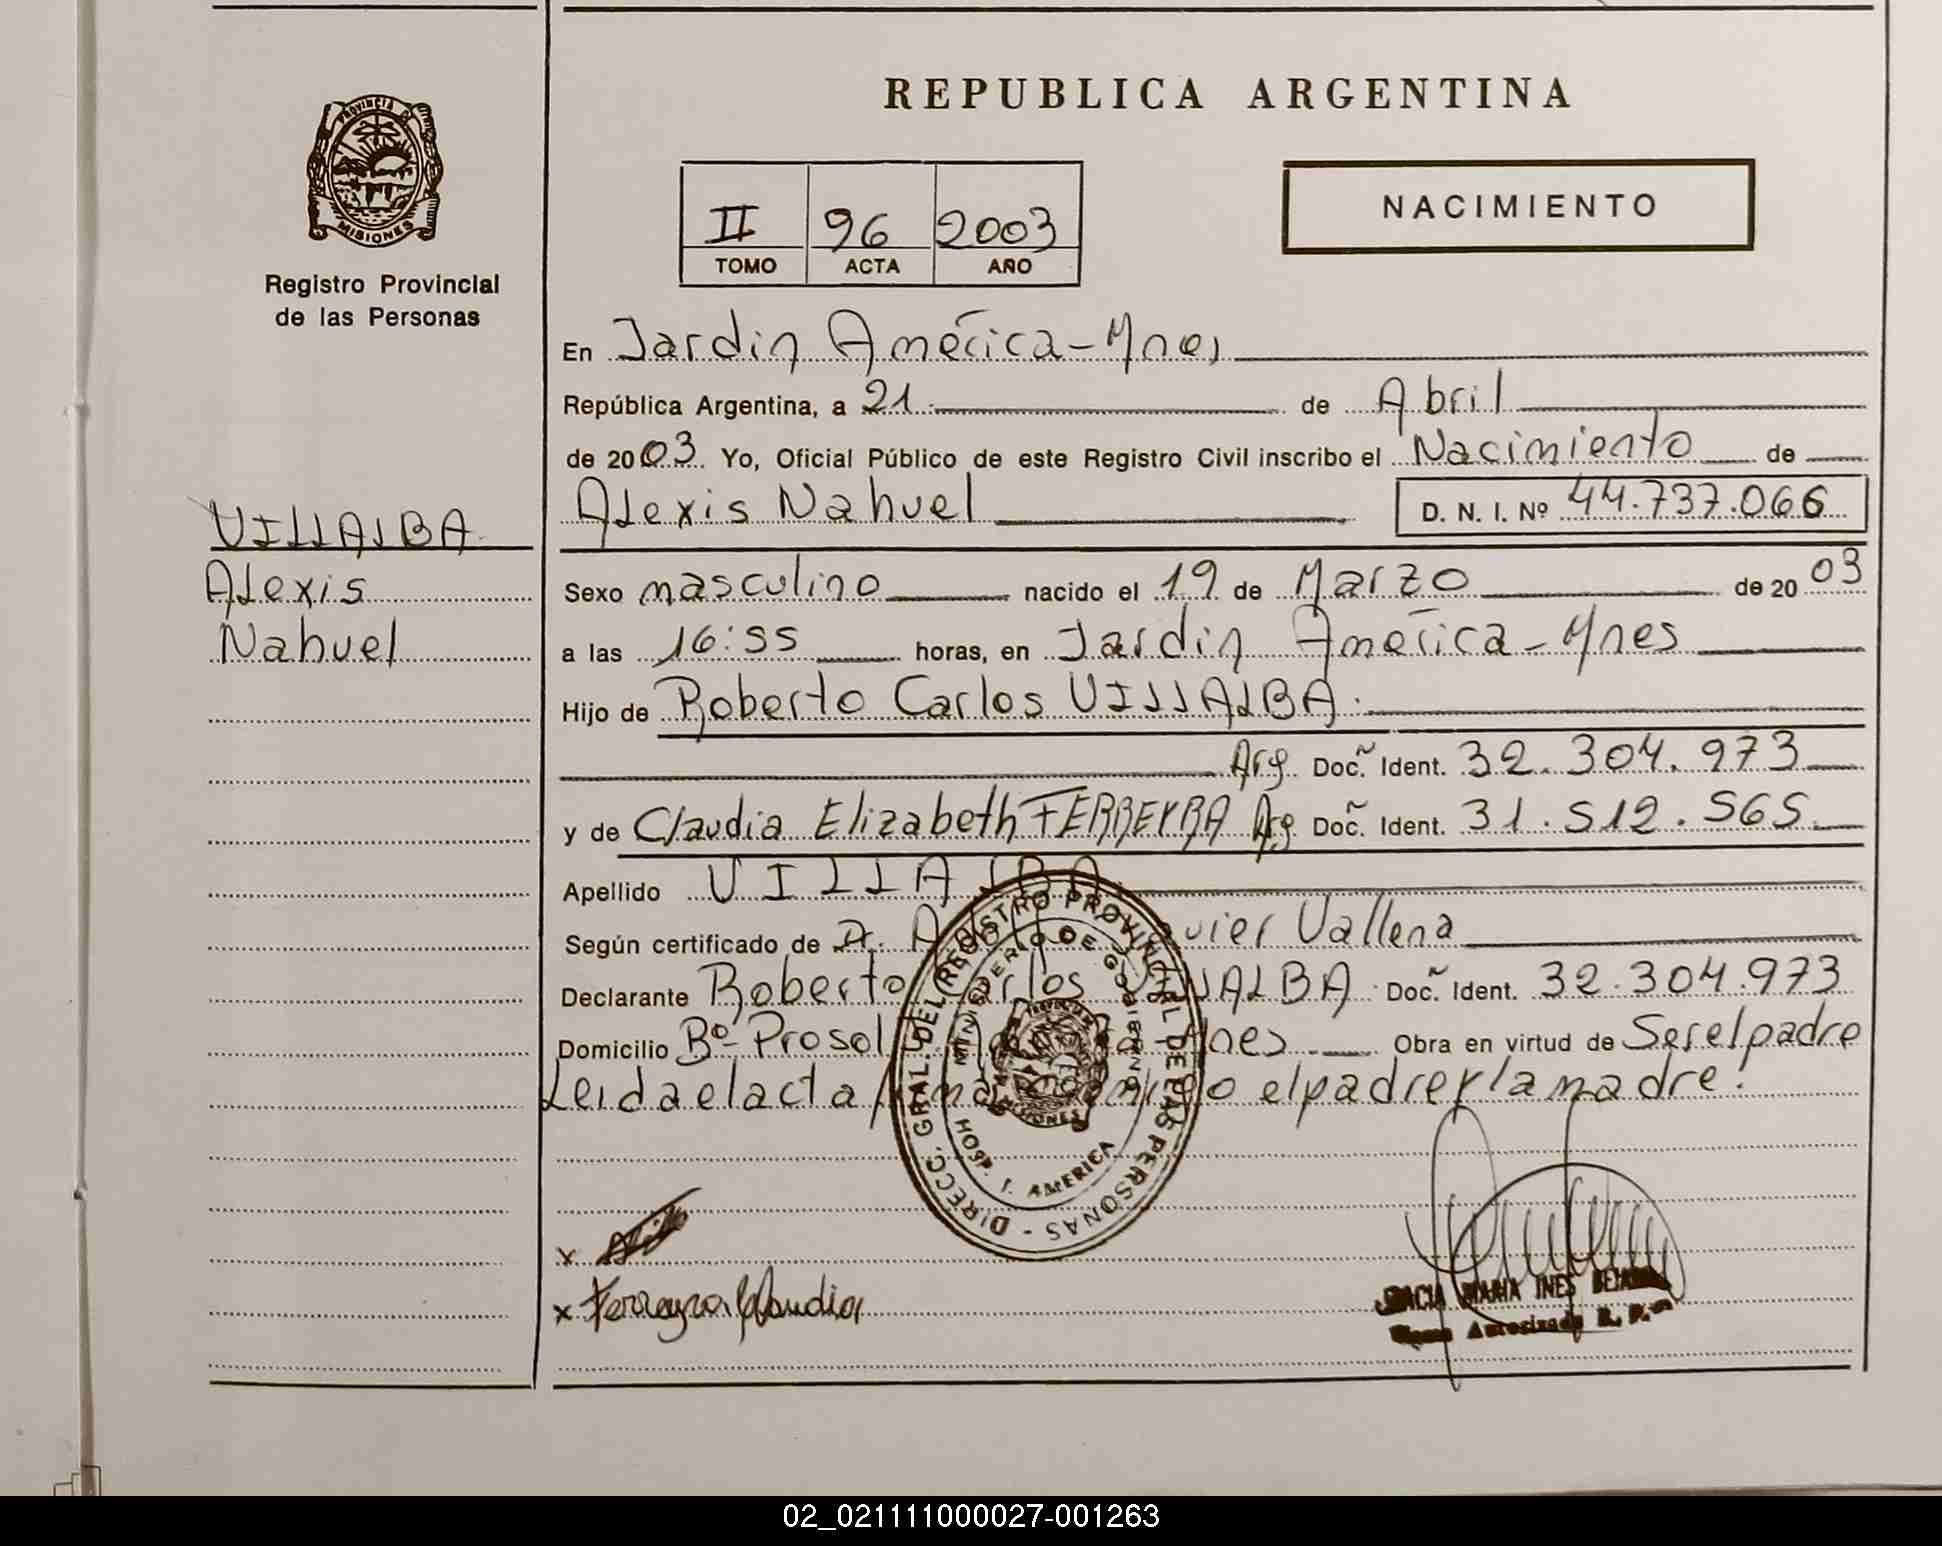 REPUBLICA ARGENTINA
PROVINCIA DE
MISIONES
Registro Provincial
de las Personas
II 96 2003
TOMO ACTA AÑO
NACIMIENTO
En Jardin América-Mnes
República Argentina, a 21 de Abril
de 2003. Yo, Oficial Público de este Registro Civil inscribo el Nacimiento de
Alexis Nahuel D. N. I. Nº 44.737.066
VILLALBA
Alexis
Nahuel
Sexo masculino nacido el 19 de Marzo de 2003
a las 16:55 horas, en Jardin América-Mnes
Hijo de Roberto Carlos VILLALBA.
Arg. Doc. Ident. 32.304.973
y de Claudia Elizabeth FERREYRA Arg Doc. Ident. 31.512.565
Apellido VILLALBA
Según certificado de Dr. Vallena
Declarante Roberto Carlos VILLALBA. Doc. Ident. 32.304.973
Domicilio Bº Prosol Mnes Obra en virtud de Ser el padre
Leida el acta el padre y la madre.
DIRECC. GRAL. DEL REGISTRO PROVINCIAL DE LAS PERSONAS -
MINISTERIO DE GOBIERNO
HOSP. J. AMERICA
x
x Ferreyra Claudia
MARIA INES
02_021111000027-001263